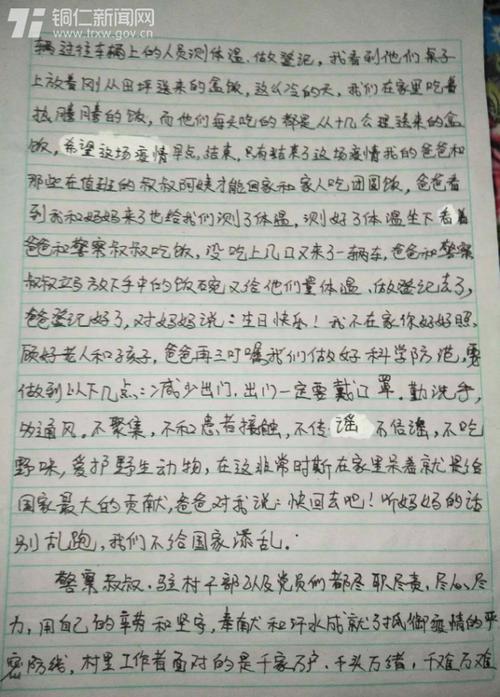 铜仁新闻网
www.trxw.gov.cn
辆过往车辆上的人员测体温、做登记,我看到他们桌子
上放着刚从田坪送来的盒饭,这么冷的天,我们在家里吃着
热腾腾的饭,而他们每天吃的都是从十几公里送来的盒
饭,希望这场疫情早点结束,只有结束了这场疫情我的爸爸和
那些在值班的叔叔阿姨才能回家和家人吃团圆饭,爸爸看
到我和妈妈来了也给我们测了体温,测好了体温坐下看着
爸爸和警察叔叔吃饭,没吃上几口又来了一辆车,爸爸和警察
叔叔立马放下手中的饭碗又给他们量体温、做登记去了,
爸爸登记好了,对妈妈说:生日快乐!我不在家你好好照
顾好老人和孩子,爸爸再三叮嘱我们做好科学防范,要
做到以下几点:减少出门,出门一定要戴口罩。勤洗手,
为通风。不聚集,不和患者接触,不传谣 不信谣,不吃
野味,爱护野生动物,在这非常时斯在家里呆着就是给
国家最大的贡献,爸爸对我说:快回去吧!听妈妈的话
别乱跑,我们不给国家添乱.
警察叔叔.驻村干部以及党员们都尽职尽责,尽心尽
力,用自己的辛劳和坚守,奉献和汗水成就了抵御疫情的严
密防线,村里工作者面对的是千家万户,千头万绪,千难万难